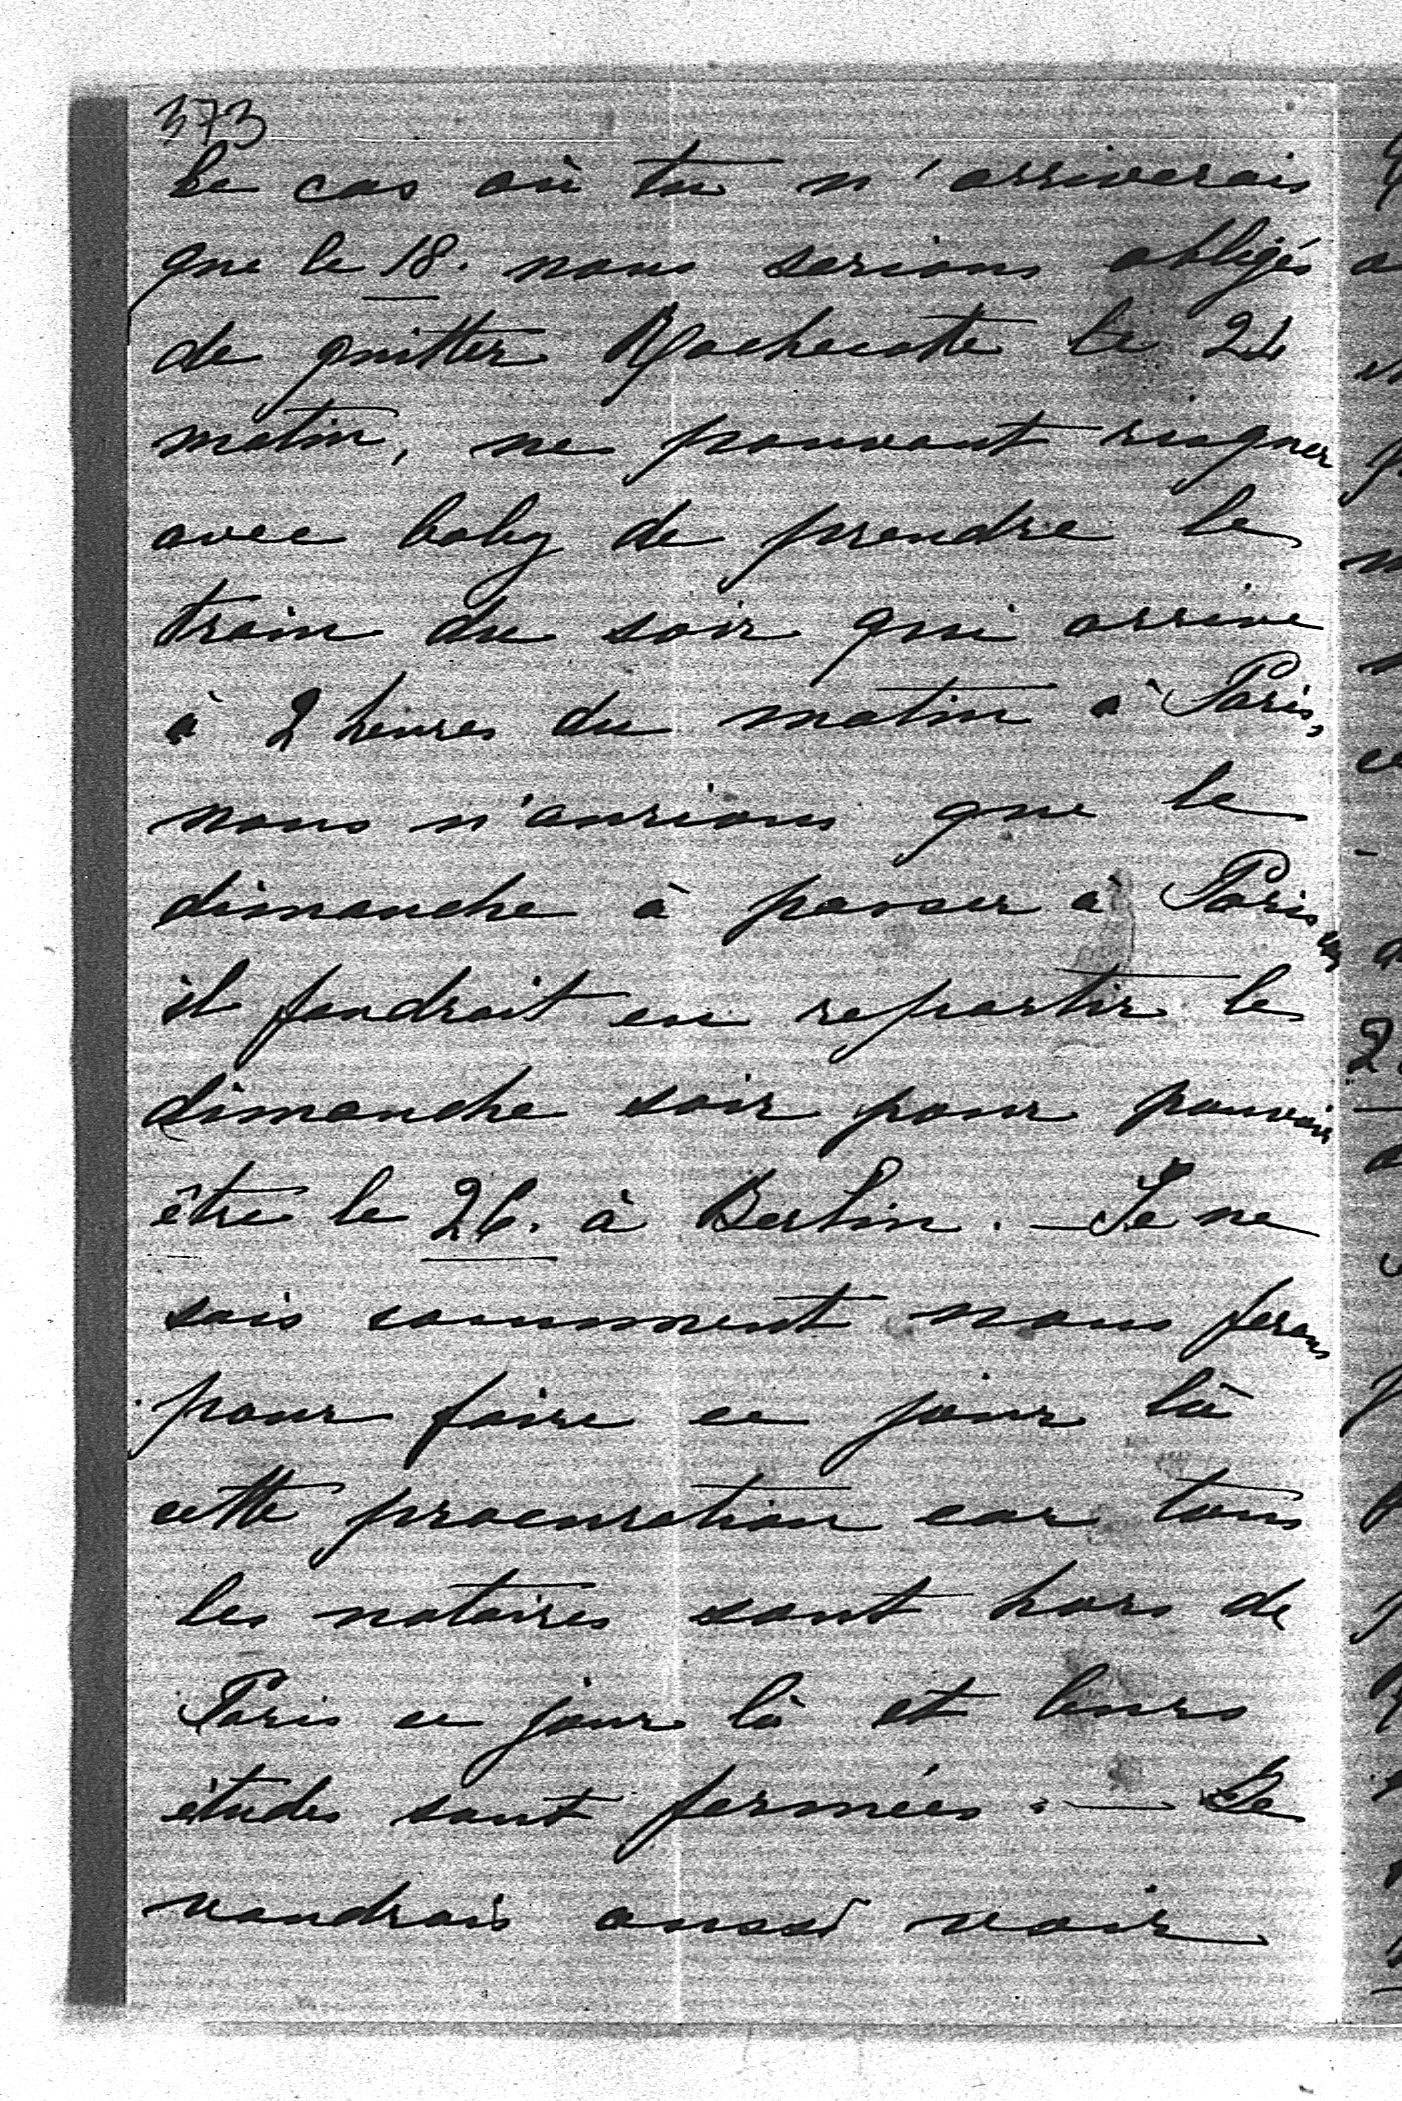 373
le cas où tu n'arriverais
que le 18. nous serions obligés
de quitter Rochecotte le 24
matin, ne pouvant risquer
avec baby de prendre le
train du soir qui arrive
à 2 heures du matin à Paris,
nous n'aurions que le
dimanche à passer à Paris
il faudrait en repartir le
dimanche soir pour pouvoir
être le 26. à Berlin. — Je ne
sais comment nous ferons
pour faire ce jour là
cette procuration car tous
les notaires sont hors de
Paris ce jour là et leurs
études sont fermées. — Je
voudrais aussi voir